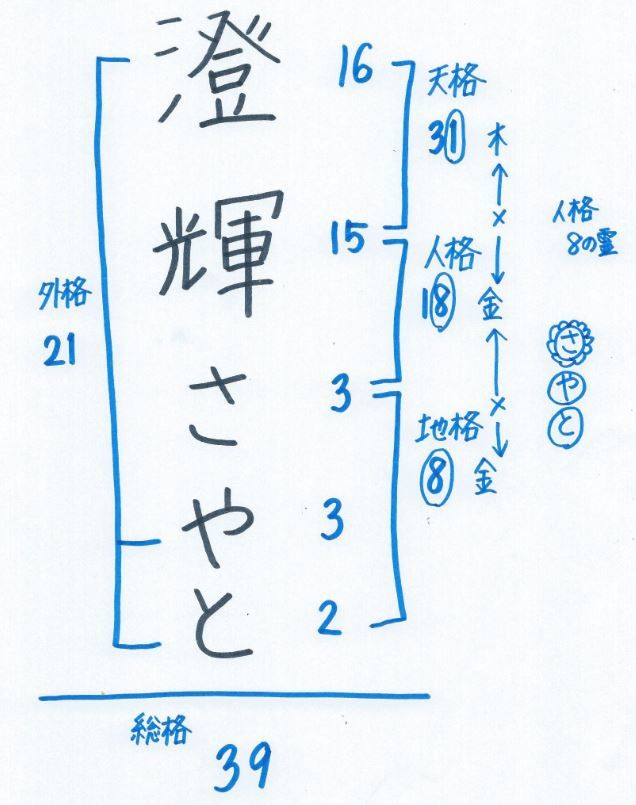 澄輝さやと
16
15
3
3
2
外格
21
天格
31
木
×
人格
18
金
×
地格
8
金
人格
8の霊
さ
や
と
総格
39